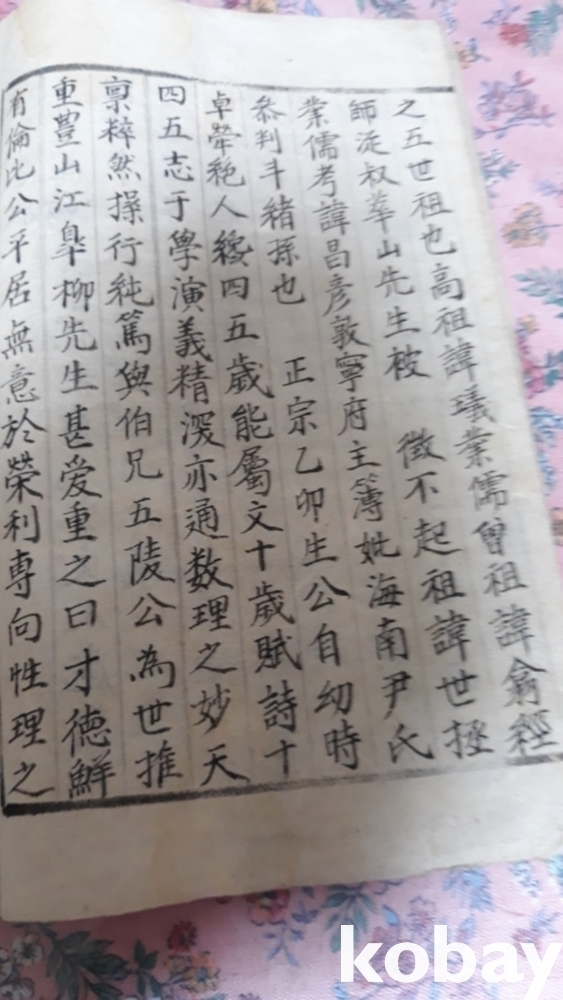 之五世祖也高祖諱璣業儒曾祖諱翕經
師從叔華山先生被 徵不起祖諱世拯
業儒考諱昌彦敦寧府主簿妣海南尹氏
叅判斗緒孫也 正宗乙卯生公自幼時
卓犖絶人纔四五歲能屬文十歲賦詩十
四五志于學演義精深亦通数理之妙天
稟粹然操行純篤與伯兄五陵公為世推
重豊山江皐柳先生甚爱重之曰才徳鮮
有倫比公平居無意於榮利専向性理之
kobay